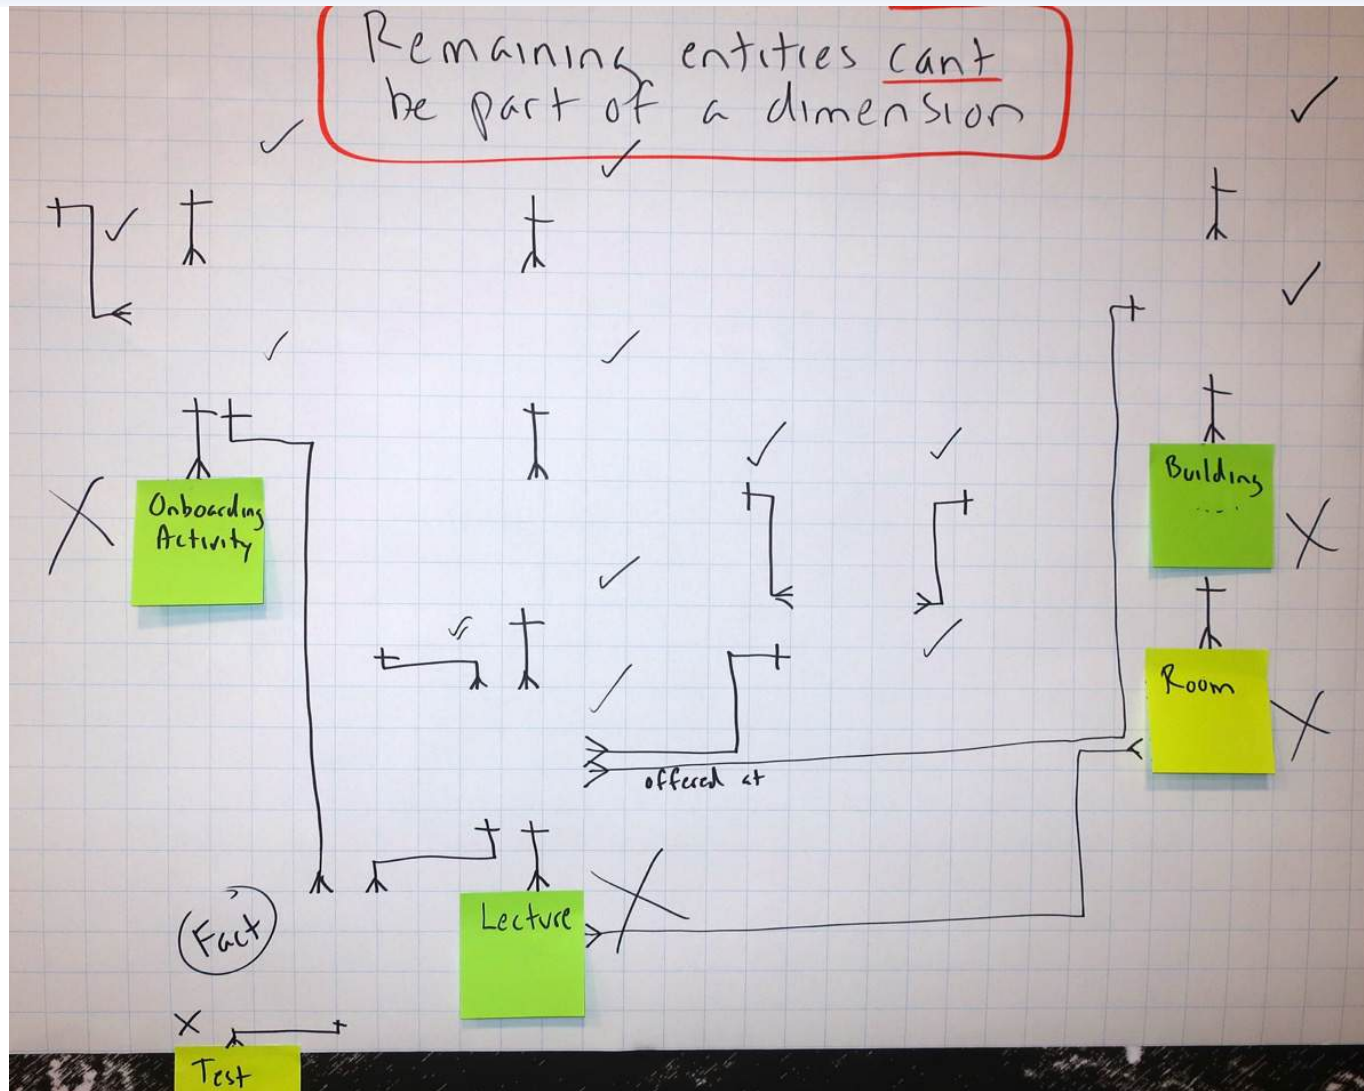 Remaining entities cant
be part of a dimension
Onboarding
Activity
Building
Room
offered at
Lecture
Fact
Test